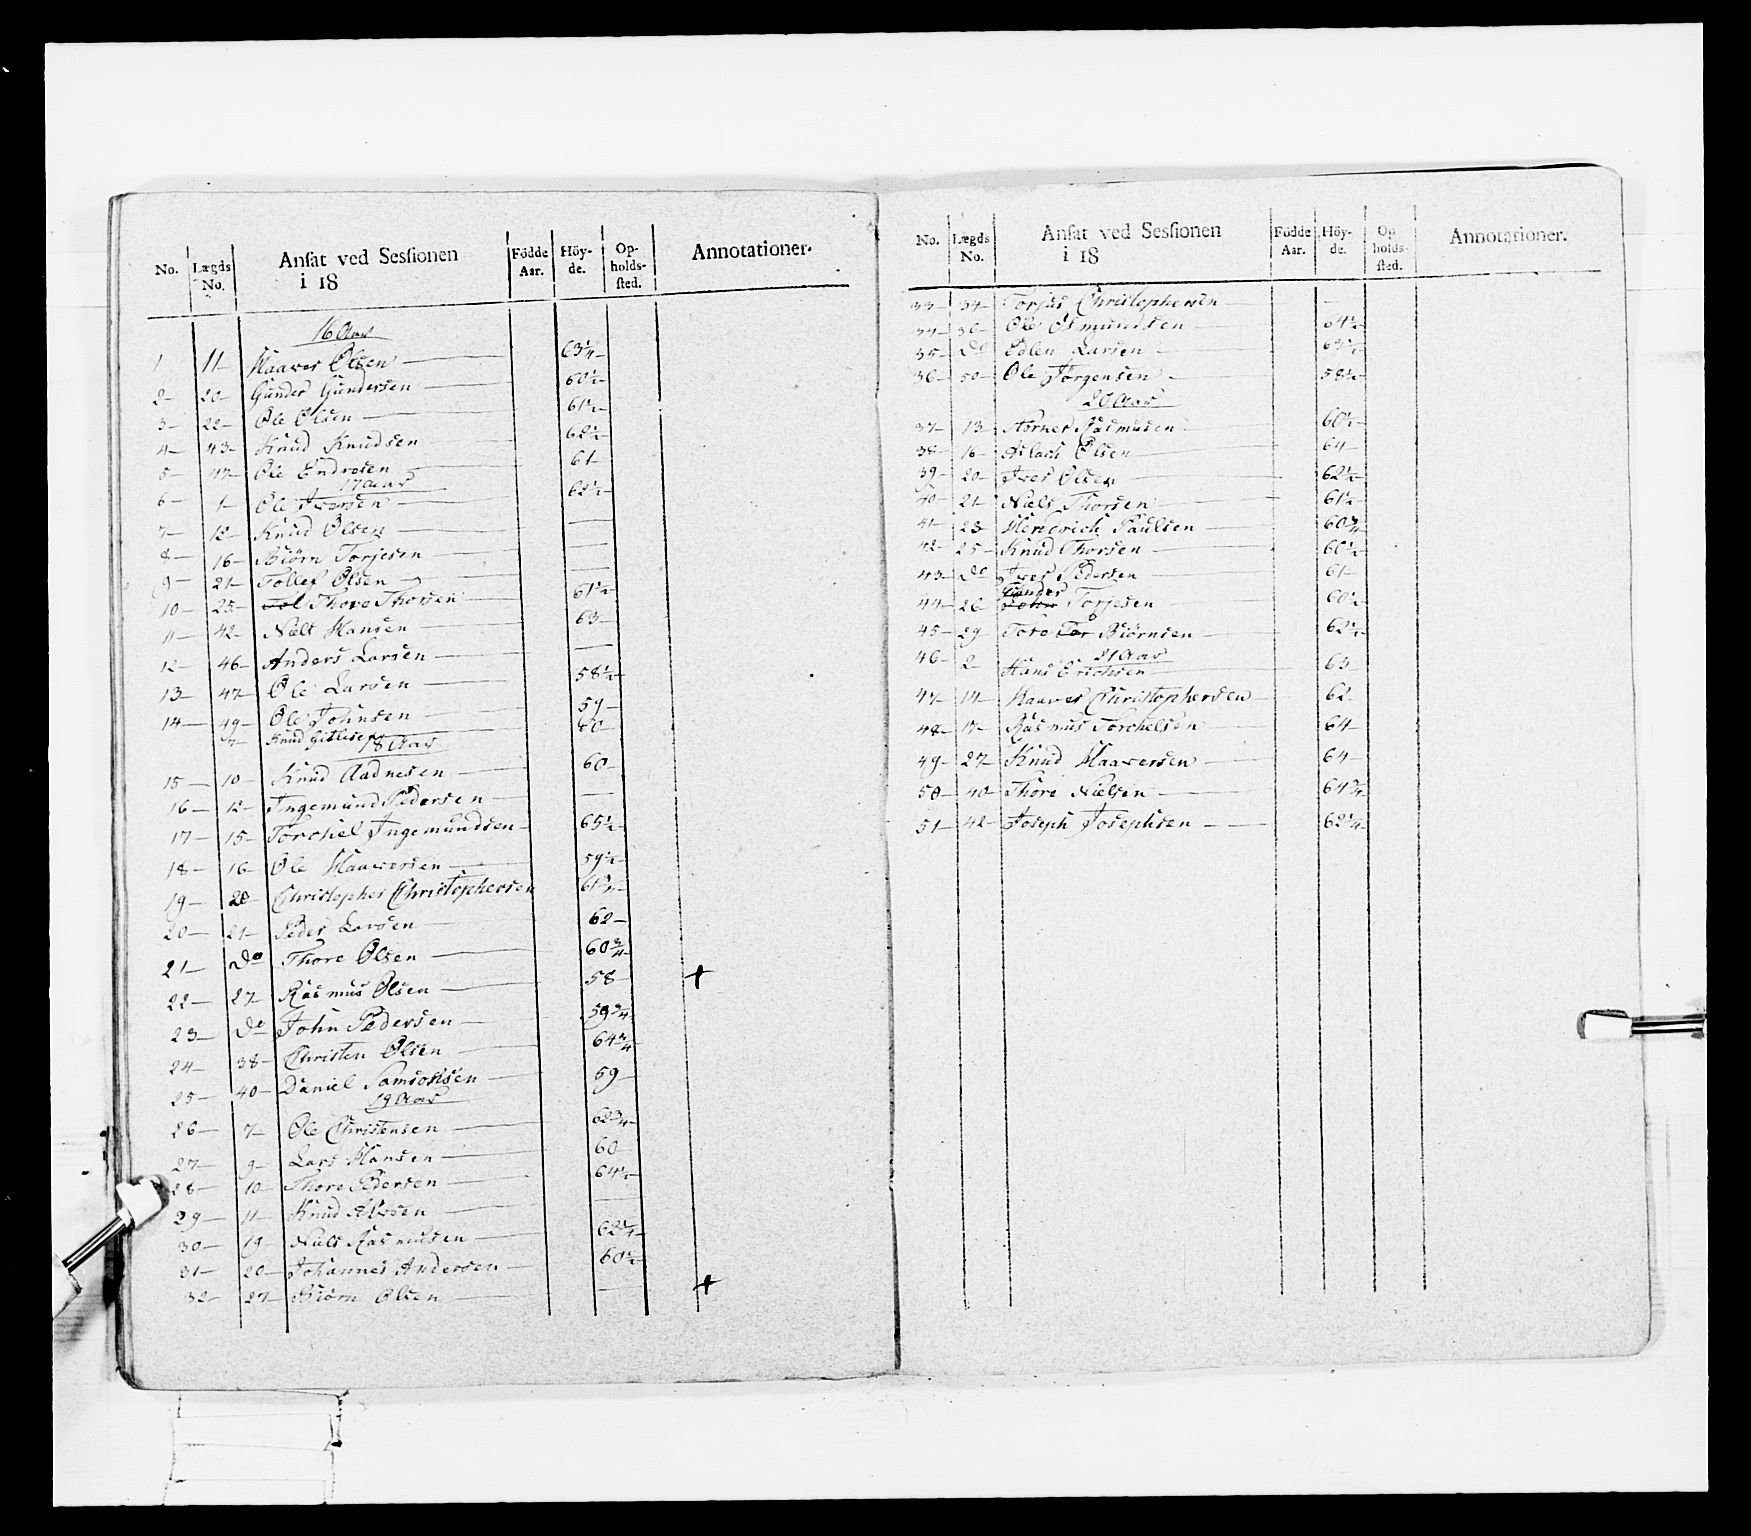 No. Lægds No. Ansat ved Sessionen i 18 Födde Aar. Höyde. Opholdssted. Annotationer.
16 Aar
1 11 Haaver Olsen 63¼
2 20 Gunder Gundersen 60½
3 22 Ole Olsen 61½
4 43 Knud Knudsen 62½
5 47 Ole Endresen 61
17 Aar
6 1 Ole Iversen 62½
7 Knud Olsen —
8 16 Biörn Torjesen —
9 21 Tollef Olsen —
10 25 Tol Thore Thorsen 61½
11 42 Niels Hansen 63
12 46 Anders Larsen —
13 47 Ole Larsen 58½
14 49 Ole Johnsen 59
7 Knud 60
18 Aar
15 10 Knud Aadnesen 60
16 12 Ingemund Pedersen —
17 15 Torchel Ingemundsen 65½
18 16 Ole Haaversen 59½
19 20 Christopher Christophersen
20 21 Peder Larsen 62
21 Do Thore Olsen 60¾
22 27 Rasmus Olsen 58 +
23 Do John Pedersen 59¾
24 38 Christen Olsen 64¾
25 40 Daniel Samsonsen 59
19 Aar
26 7 Ole Christensen 62¾
27 9 Lars Hansen 60
28 10 Thore Pedersen 64½
29 11 Knud —
30 19 Niels Rasmusen 62¼
31 20 Johannes Andersen 60½
32 27 Biörn Olsen — +
No. Lægds No. Ansat ved Sessionen i 18 Födde Aar. Höyde. Opholdssted. Annotationer.
33 34 Torjus Christophersen —
34 36 Ole Osmundsen 64½
35 Do Edlen Larsen
36 50 Ole Jörgensen 58½
20 Aar
37 13 Rasmusen 60½
38 16 Aslach Olsen 64
39 20 Iver Olsen 62½
40 21 Niels Thorsen 61½
41 23 Hendrich Paulsen 60¾
42 25 Knud Thorsen 60½
43 Do Iver Pedersen 61
Gunder
44 26 John Torjesen 60½
45 29 Tore Tor Biörnsen 62½
21 Aar
46 2 Hans Erichsen 63
47 14 Haaver Christophersen 62
48 17 Rasmus Torchelsen 64
49 27 Knud Haaversen 64
50 40 Thore Nielsen 64¾
51 42 Joseph Josephsen 62¼